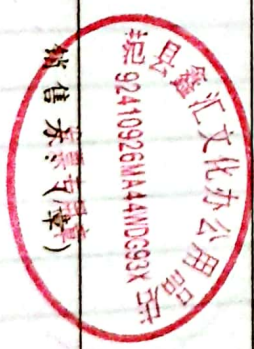 范县鑫汇文化办公用品店
92410926MA44WDG93X
发票专用章
销售方：（章）